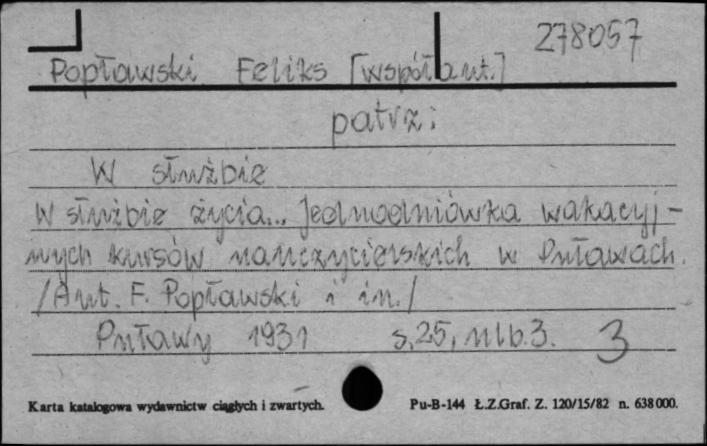 278057
Popławski Feliks [współaut.]
patrz:
W służbie
W służbie życia... Jednodniówka wakacyj-
nych kursów nauczycielskich w Puławach.
/Aut. F. Popławski i in./
Puławy 1931 s. 25, nlb. 3. 3
Karta katalogowa wydawnictw ciągłych i zwartych. Pu-B-144 Ł.Z.Graf. Z. 120/15/82 n. 638000.